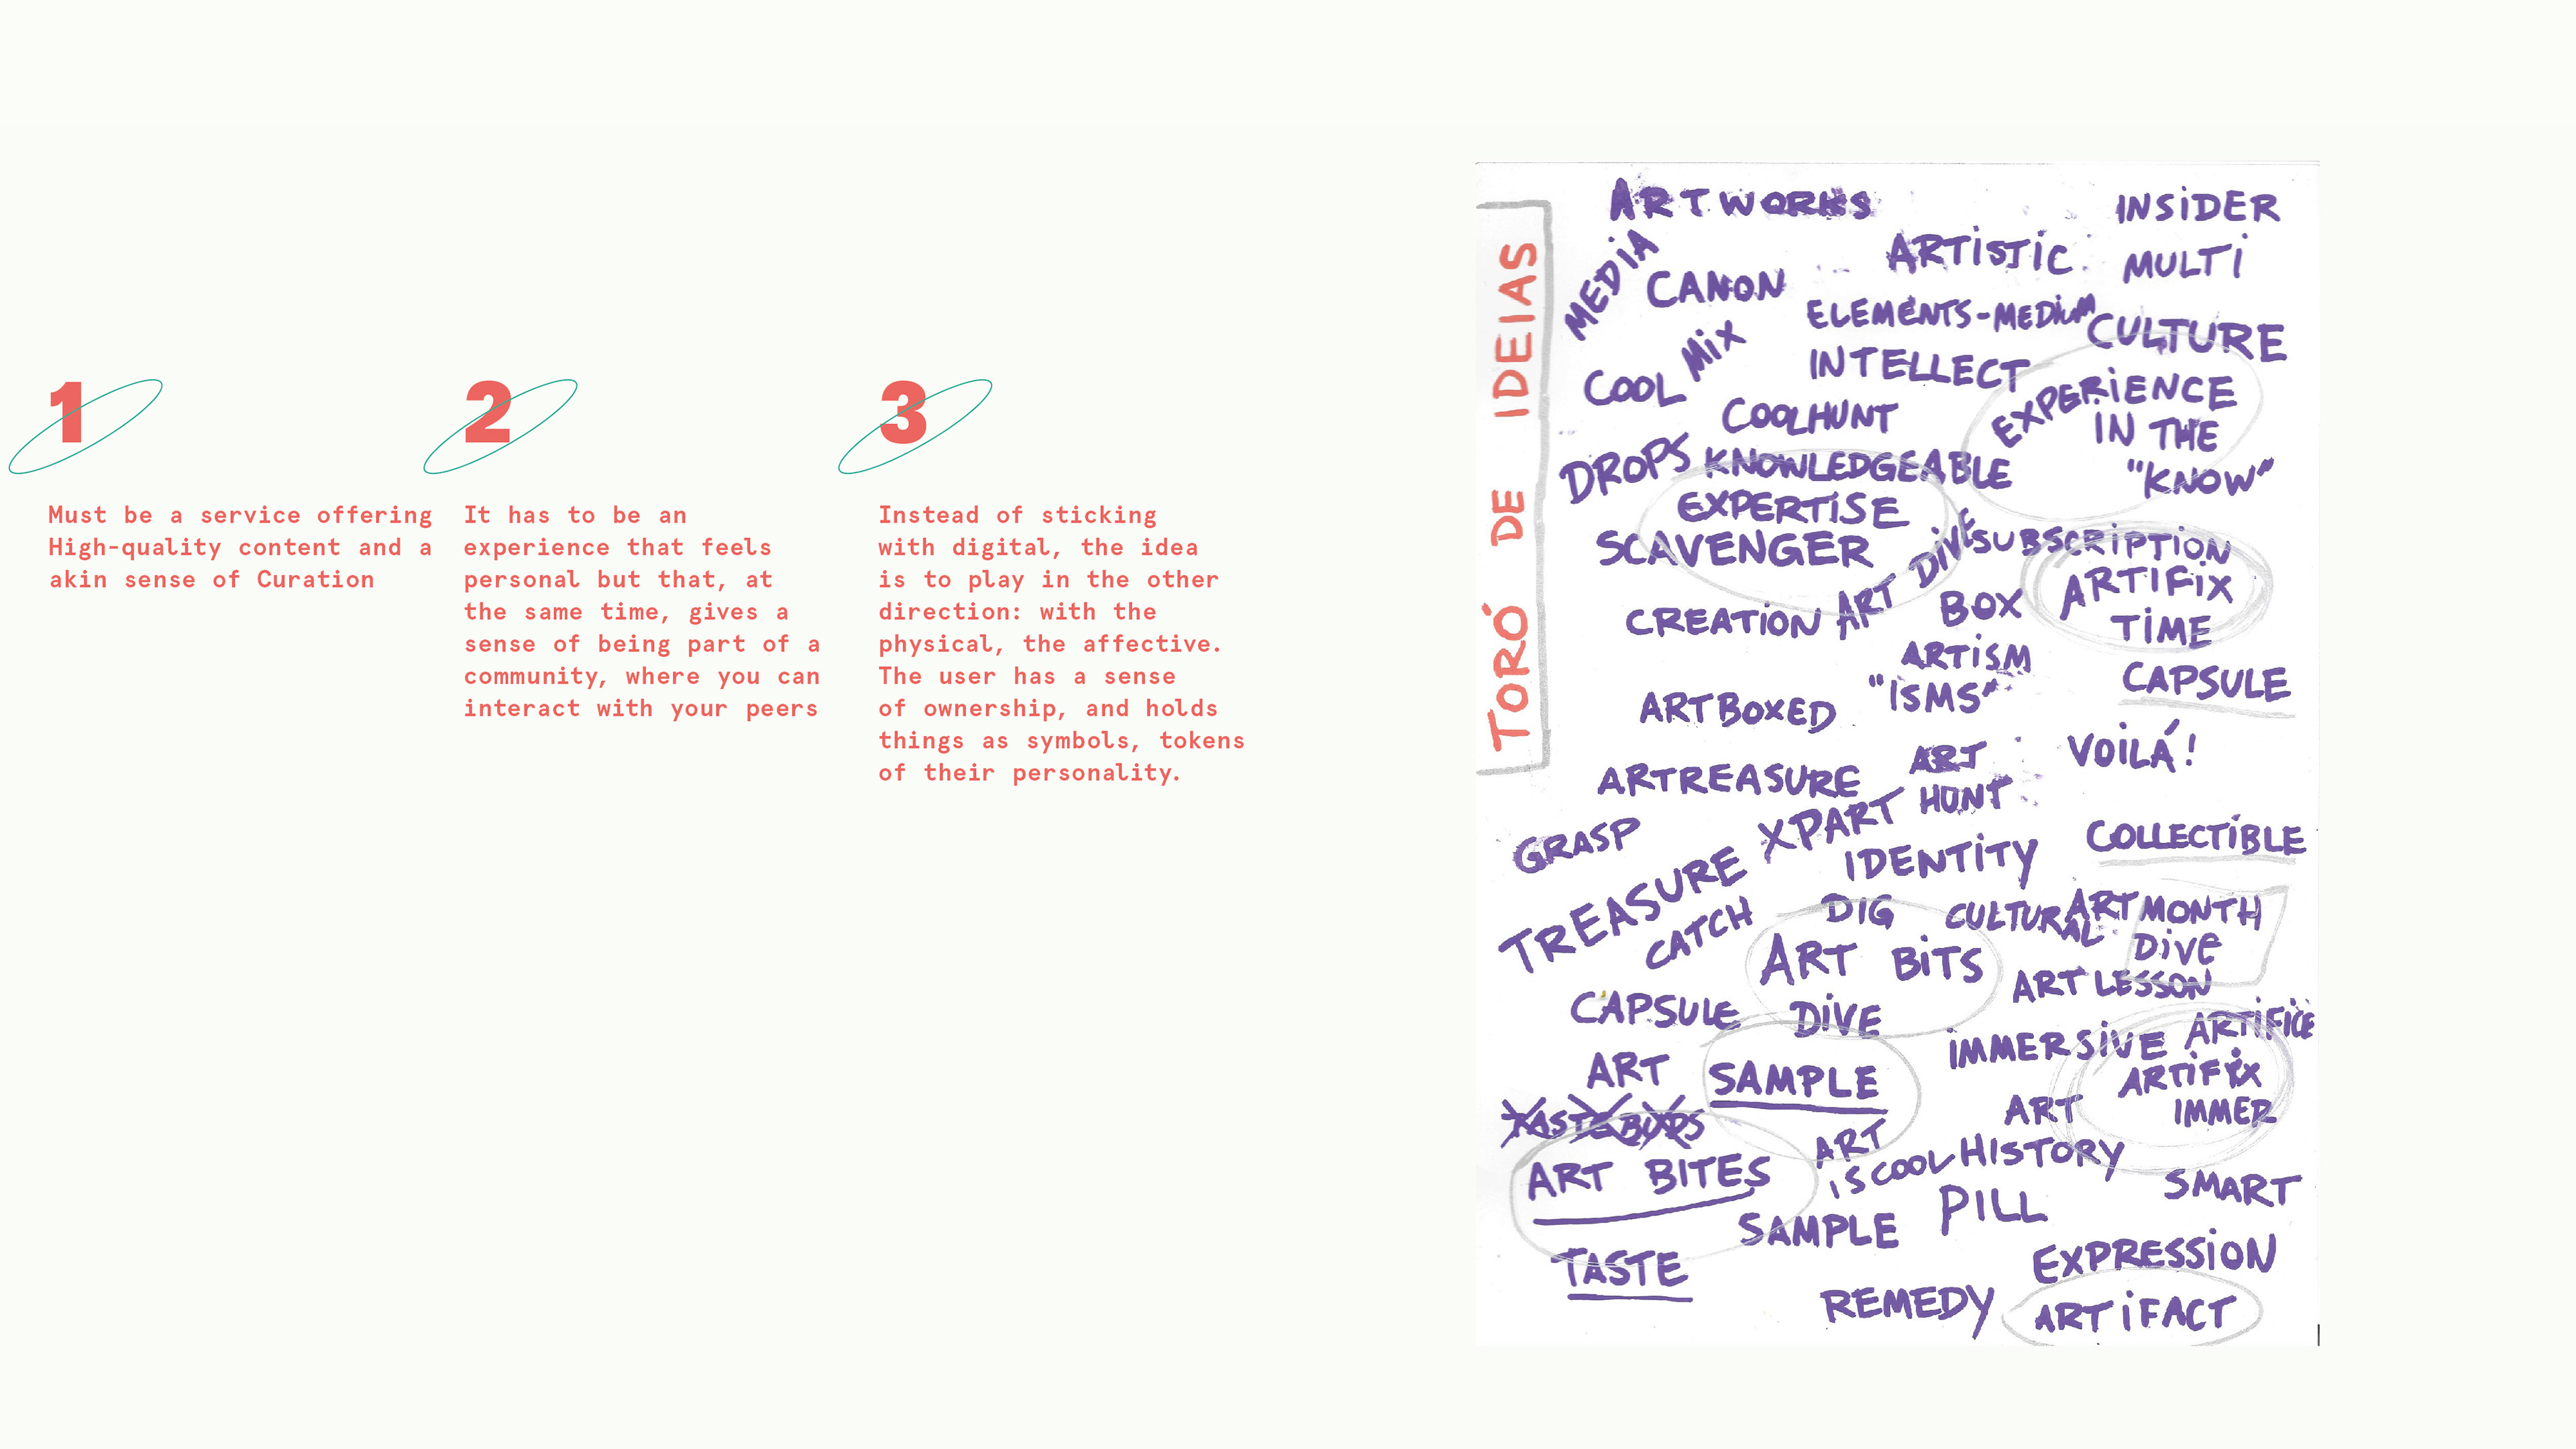 1
Must be a service offering
High-quality content and a
akin sense of Curation
2
It has to be an
experience that feels
personal but that, at
the same time, gives a
sense of being part of a
community, where you can
interact with your peers
3
Instead of sticking
with digital, the idea
is to play in the other
direction: with the
physical, the affective.
The user has a sense
of ownership, and holds
things as symbols, tokens
of their personality.
TORÓ DE IDEIAS
ARTWORKS
INSIDER
MEDIA
ARTISTIC
MULTI
CANON
ELEMENTS-MEDIUM
CULTURE
COOL MIX
INTELLECT
EXPERIENCE
IN THE
"KNOW"
COOLHUNT
DROPS
KNOWLEDGEABLE
EXPERTISE
SCAVENGER
SUBSCRIPTION
ARTIFIX
TIME
CAPSULE
CREATION
ART DIVE
BOX
ARTISM
"ISMS"
ARTBOXED
VOILÁ!
ARTREASURE
ART
HUNT
XPART
GRASP
IDENTITY
COLLECTIBLE
TREASURE
CATCH
DIG
CULTURAL
ART MONTH
DIVE
ART BITS
ART LESSON
CAPSULE
DIVE
IMMERSIVE
ARTIFICE
ART
SAMPLE
ARTIFIX
IMMER
TASTE BUDS
ART
ART BITES
ART
IS COOL
HISTORY
SMART
SAMPLE
PILL
TASTE
EXPRESSION
REMEDY
ARTIFACT